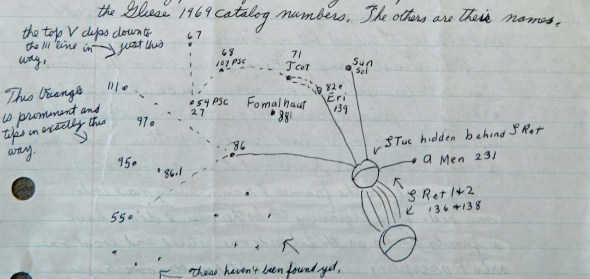 the Gliese 1969 catalog numbers. The others are their names.
the top V dips down to
the 111 line in just this
way.
67
68
107 PSC
71
T Cet
Sun
Sol
111
This triangle
is prominent and
tips in exactly this
way.
54 PSC
27
Fomalhaut
881
82
Eri
139
97
86
ζ Tuc hidden behind ζ Ret
α Men 231
95
86.1
ζ Ret 1 & 2
136 & 138
55
These haven't been found yet.